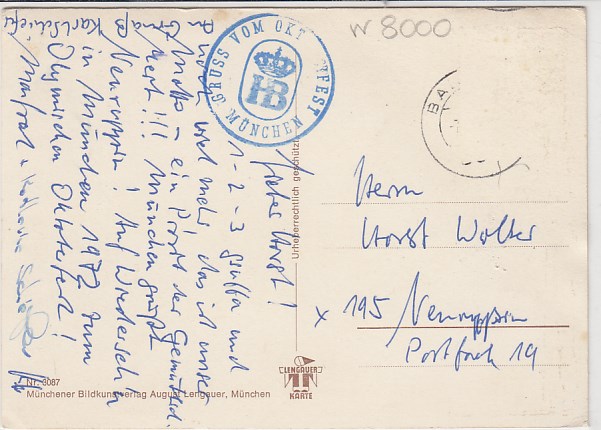 W 8000
GRUSS VOM OKT FEST
HB
MÜNCHEN
BA
Lieber Horst!
1-2-3 gsuffa und
noch viel mehr, das ist unser
Motto - ein Prosit der Gemütlich.
keit!!! München grüßt
Neuruppin! Auf Wiederseh'n
in München 1972 zum
Olympischen Oktoberfest!
Manfred +
Karl
Urheberrechtlich geschützt
Herrn
Horst Wolter
x 195 Neuruppin
Postfach 19
LENGAUER
KARTE
Nr. 3087
Münchener Bildkunstverlag August Lengauer, München